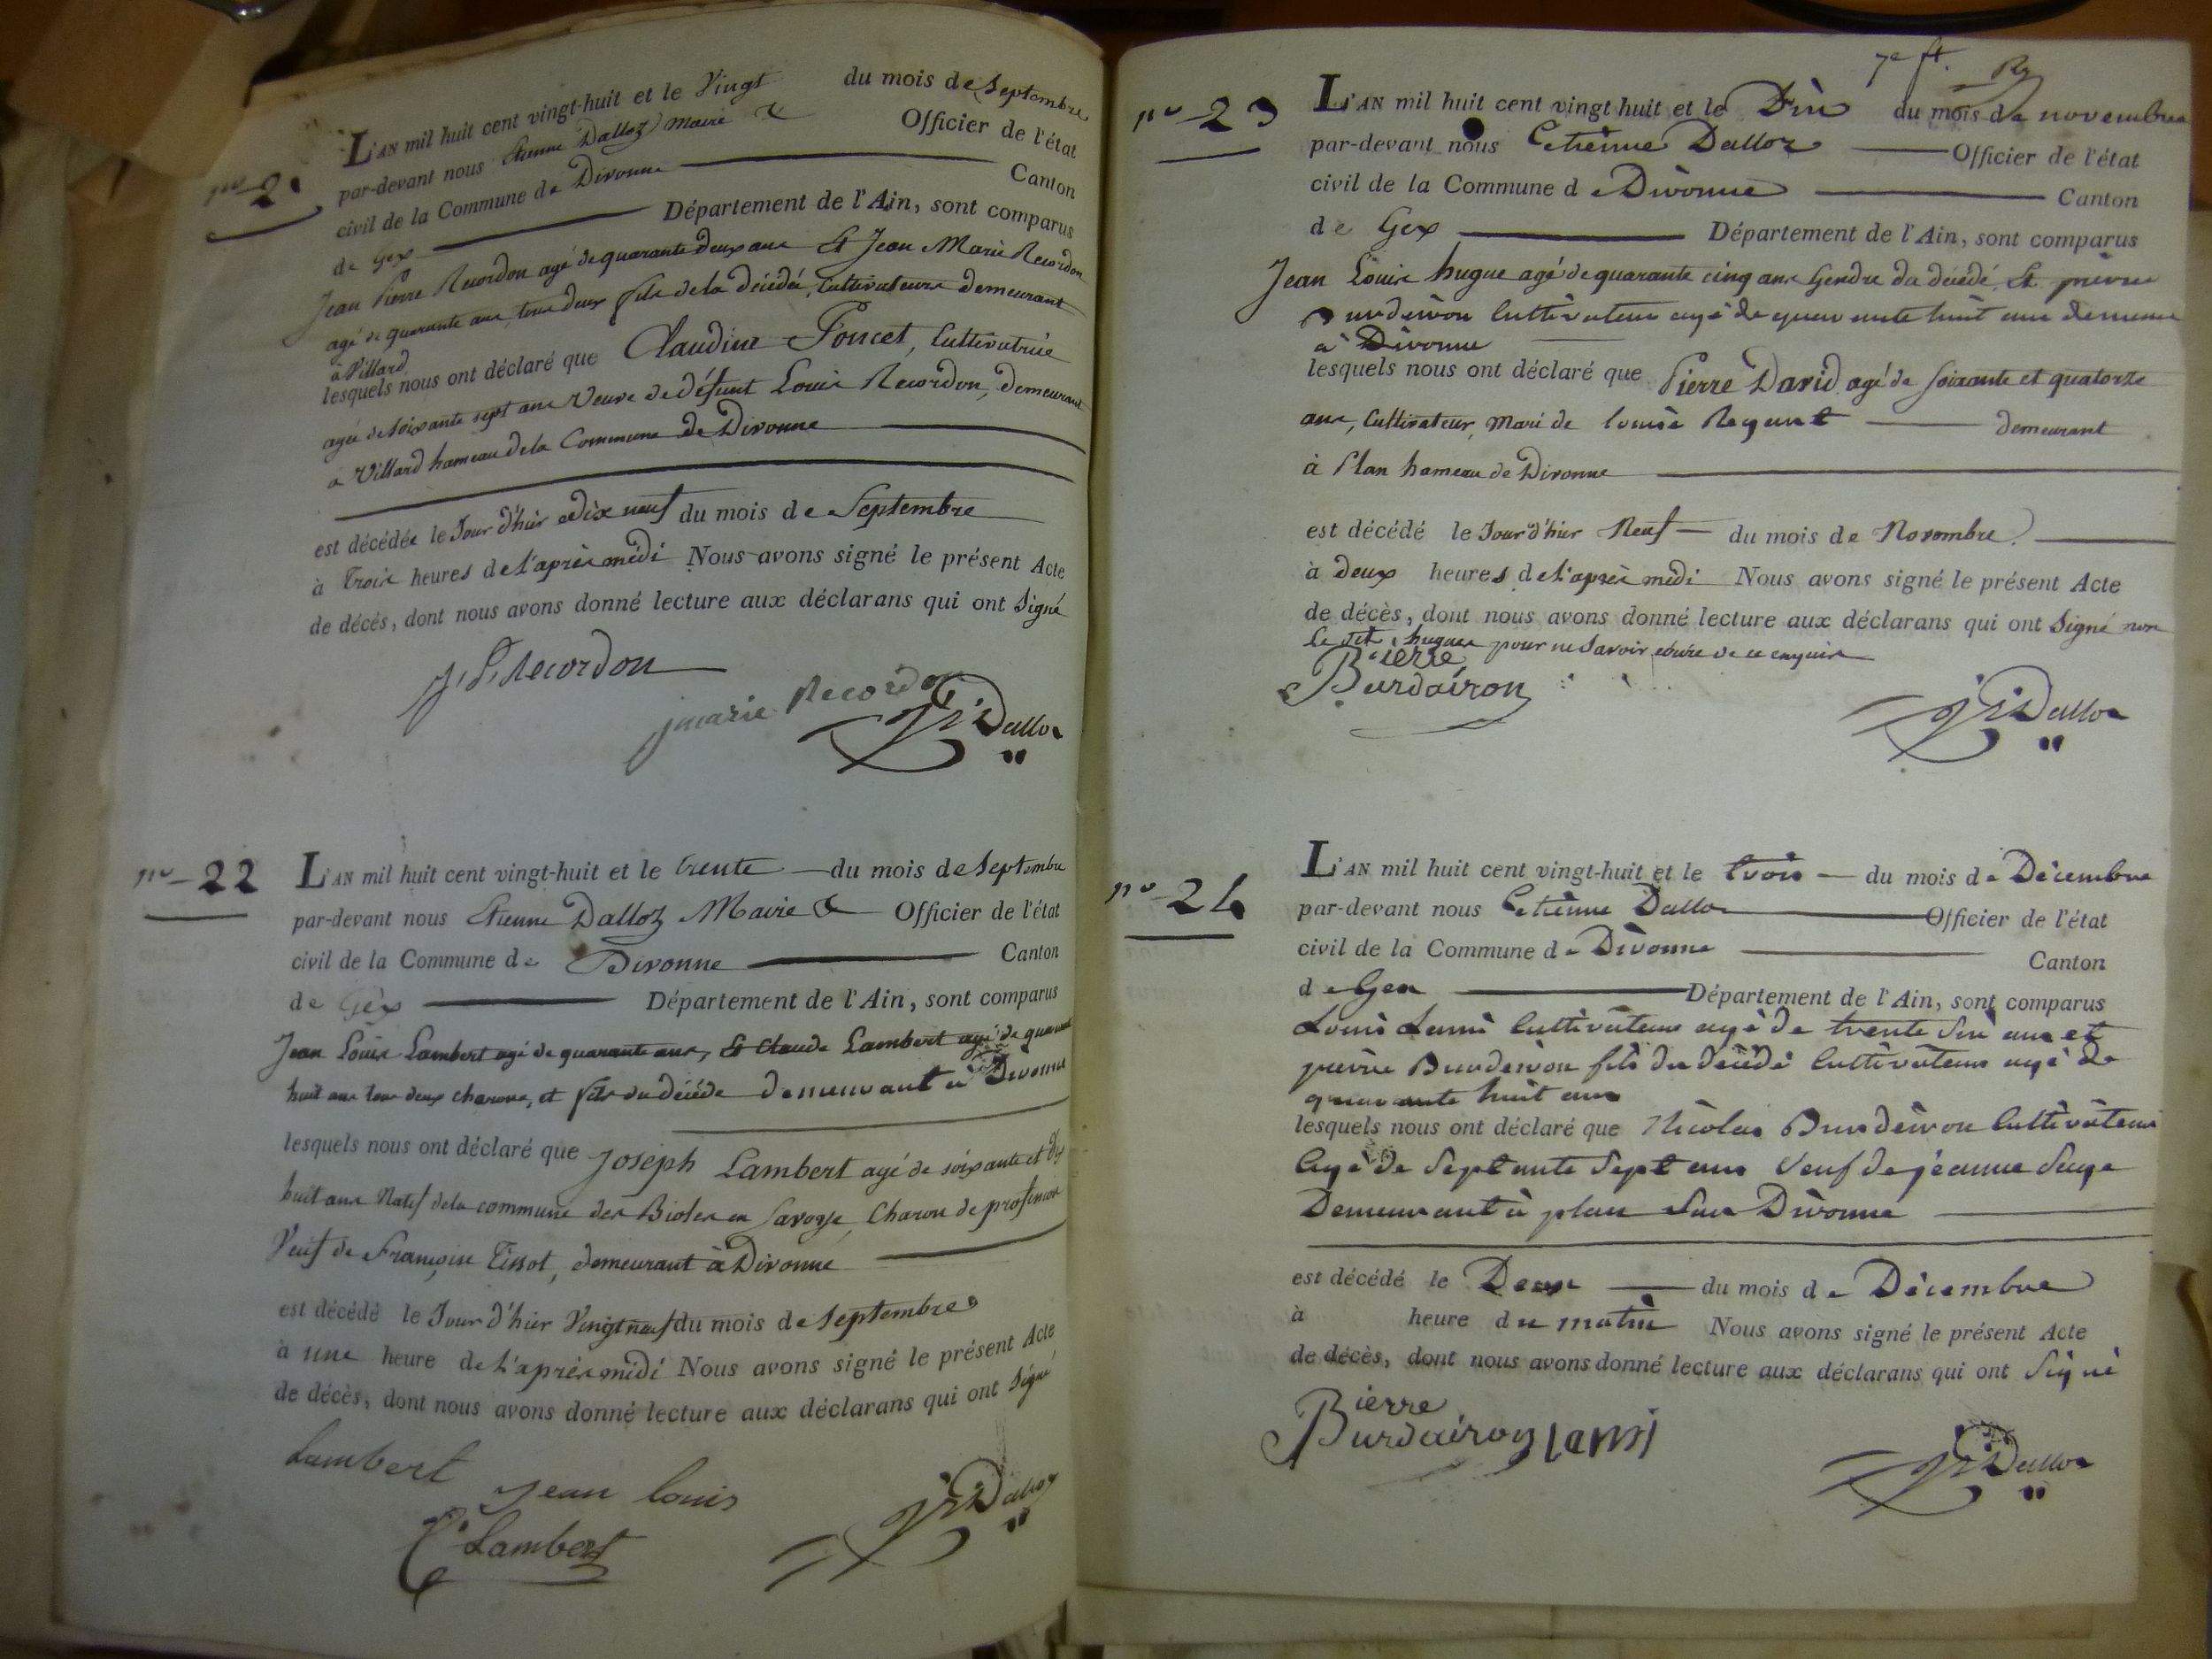 L'AN mil huit cent vingt-huit et le Vingt du mois de Septembre
par-devant nous Etienne Dalloz maire & Officier de l'état
civil de la Commune de Divonne Canton
de Gex Département de l'Ain, sont comparus
Jean Pierre Recordon agé de quarante deux ans Et Jean Marie Recordon
agé de quarante ans, tous deux fils de la décédée, Cultivateurs demeurant
à Villard
lesquels nous ont déclaré que Claudine Poncet, Cultivatrice
agée de soixante sept ans Veuve de défunt Louis Recordon, demeurant
à Villard hameau de la Commune de Divonne
est décédée le Jour d'hier dix neuf du mois de Septembre
à Trois heures de l'après midi Nous avons signé le présent Acte
de décés, dont nous avons donné lecture aux déclarans qui ont Signé
J P Recordon
jmarie Recordon
Dalloz
no 22
L'AN mil huit cent vingt-huit et le trente du mois de Septembre
par-devant nous Etienne Dalloz Maire & Officier de l'état
civil de la Commune de Divonne Canton
de Gex Département de l'Ain, sont comparus
Jean Louis Lambert agé de quarante ans, Et Claude Lambert agé de quarante
huit ans tous deux charons, et fils du décédé demeurant à Divonne
lesquels nous ont déclaré que Joseph Lambert agé de soixante et dix
huit ans Natif de la commune des Bioles en Savoye, Charon de profession
Veuf de Françoise Tissot, demeurant à Divonne
est décédé le Jour d'hier Vingt neuf du mois de Septembre
à une heure de l'après midi Nous avons signé le présent Acte
de décès, dont nous avons donné lecture aux déclarans qui ont Signé
Lambert Jean louis
C Lambert
Dalloz
7e ft.
no 23
L'AN mil huit cent vingt huit et le Dix du mois de novembre
par-devant nous Etienne Dalloz Officier de l'état
civil de la Commune de Divonne Canton
de Gex Département de l'Ain, sont comparus
Jean Louis hugue agé de quarante cinq ans Gendre du décédé, Et pierre
Burdeiron Cultivateur agé de quarante huit ans demeurant
à Divonne
lesquels nous ont déclaré que Pierre David agé de soixante et quatorze
ans, Cultivateur, Mari de louise Regard demeurant
à Plan hameau de Divonne
est décédé le Jour d'hier Neuf du mois de Novembre
à deux heures de l'après midi Nous avons signé le présent Acte
de décès, dont nous avons donné lecture aux déclarans qui ont Signé non
Le dit hugues pour ne Savoir écrire de ce enquis
Pierre
Burdairon
Dalloz
no 24
L'AN mil huit cent vingt-huit et le trois du mois de Décembre
par-devant nous Etienne Dalloz Officier de l'état
civil de la Commune de Divonne Canton
de Gex Département de l'Ain, sont comparus
Louis Lami Cultivateur agé de trente Six ans et
pierre Burdeiron fils du décédé Cultivateur agé de
quarante huit ans
lesquels nous ont déclaré que Nicolas Burdeiron Cultivateur
Agé de Septante Sept ans Veuf de jeanne Sage
Demeurant à plan Sur Divonne
est décédé le Deux du mois de Décembre
à heure du matin Nous avons signé le présent Acte
de décès, dont nous avons donné lecture aux déclarans qui ont Signé
Pierre
Burdairon lami
Dalloz